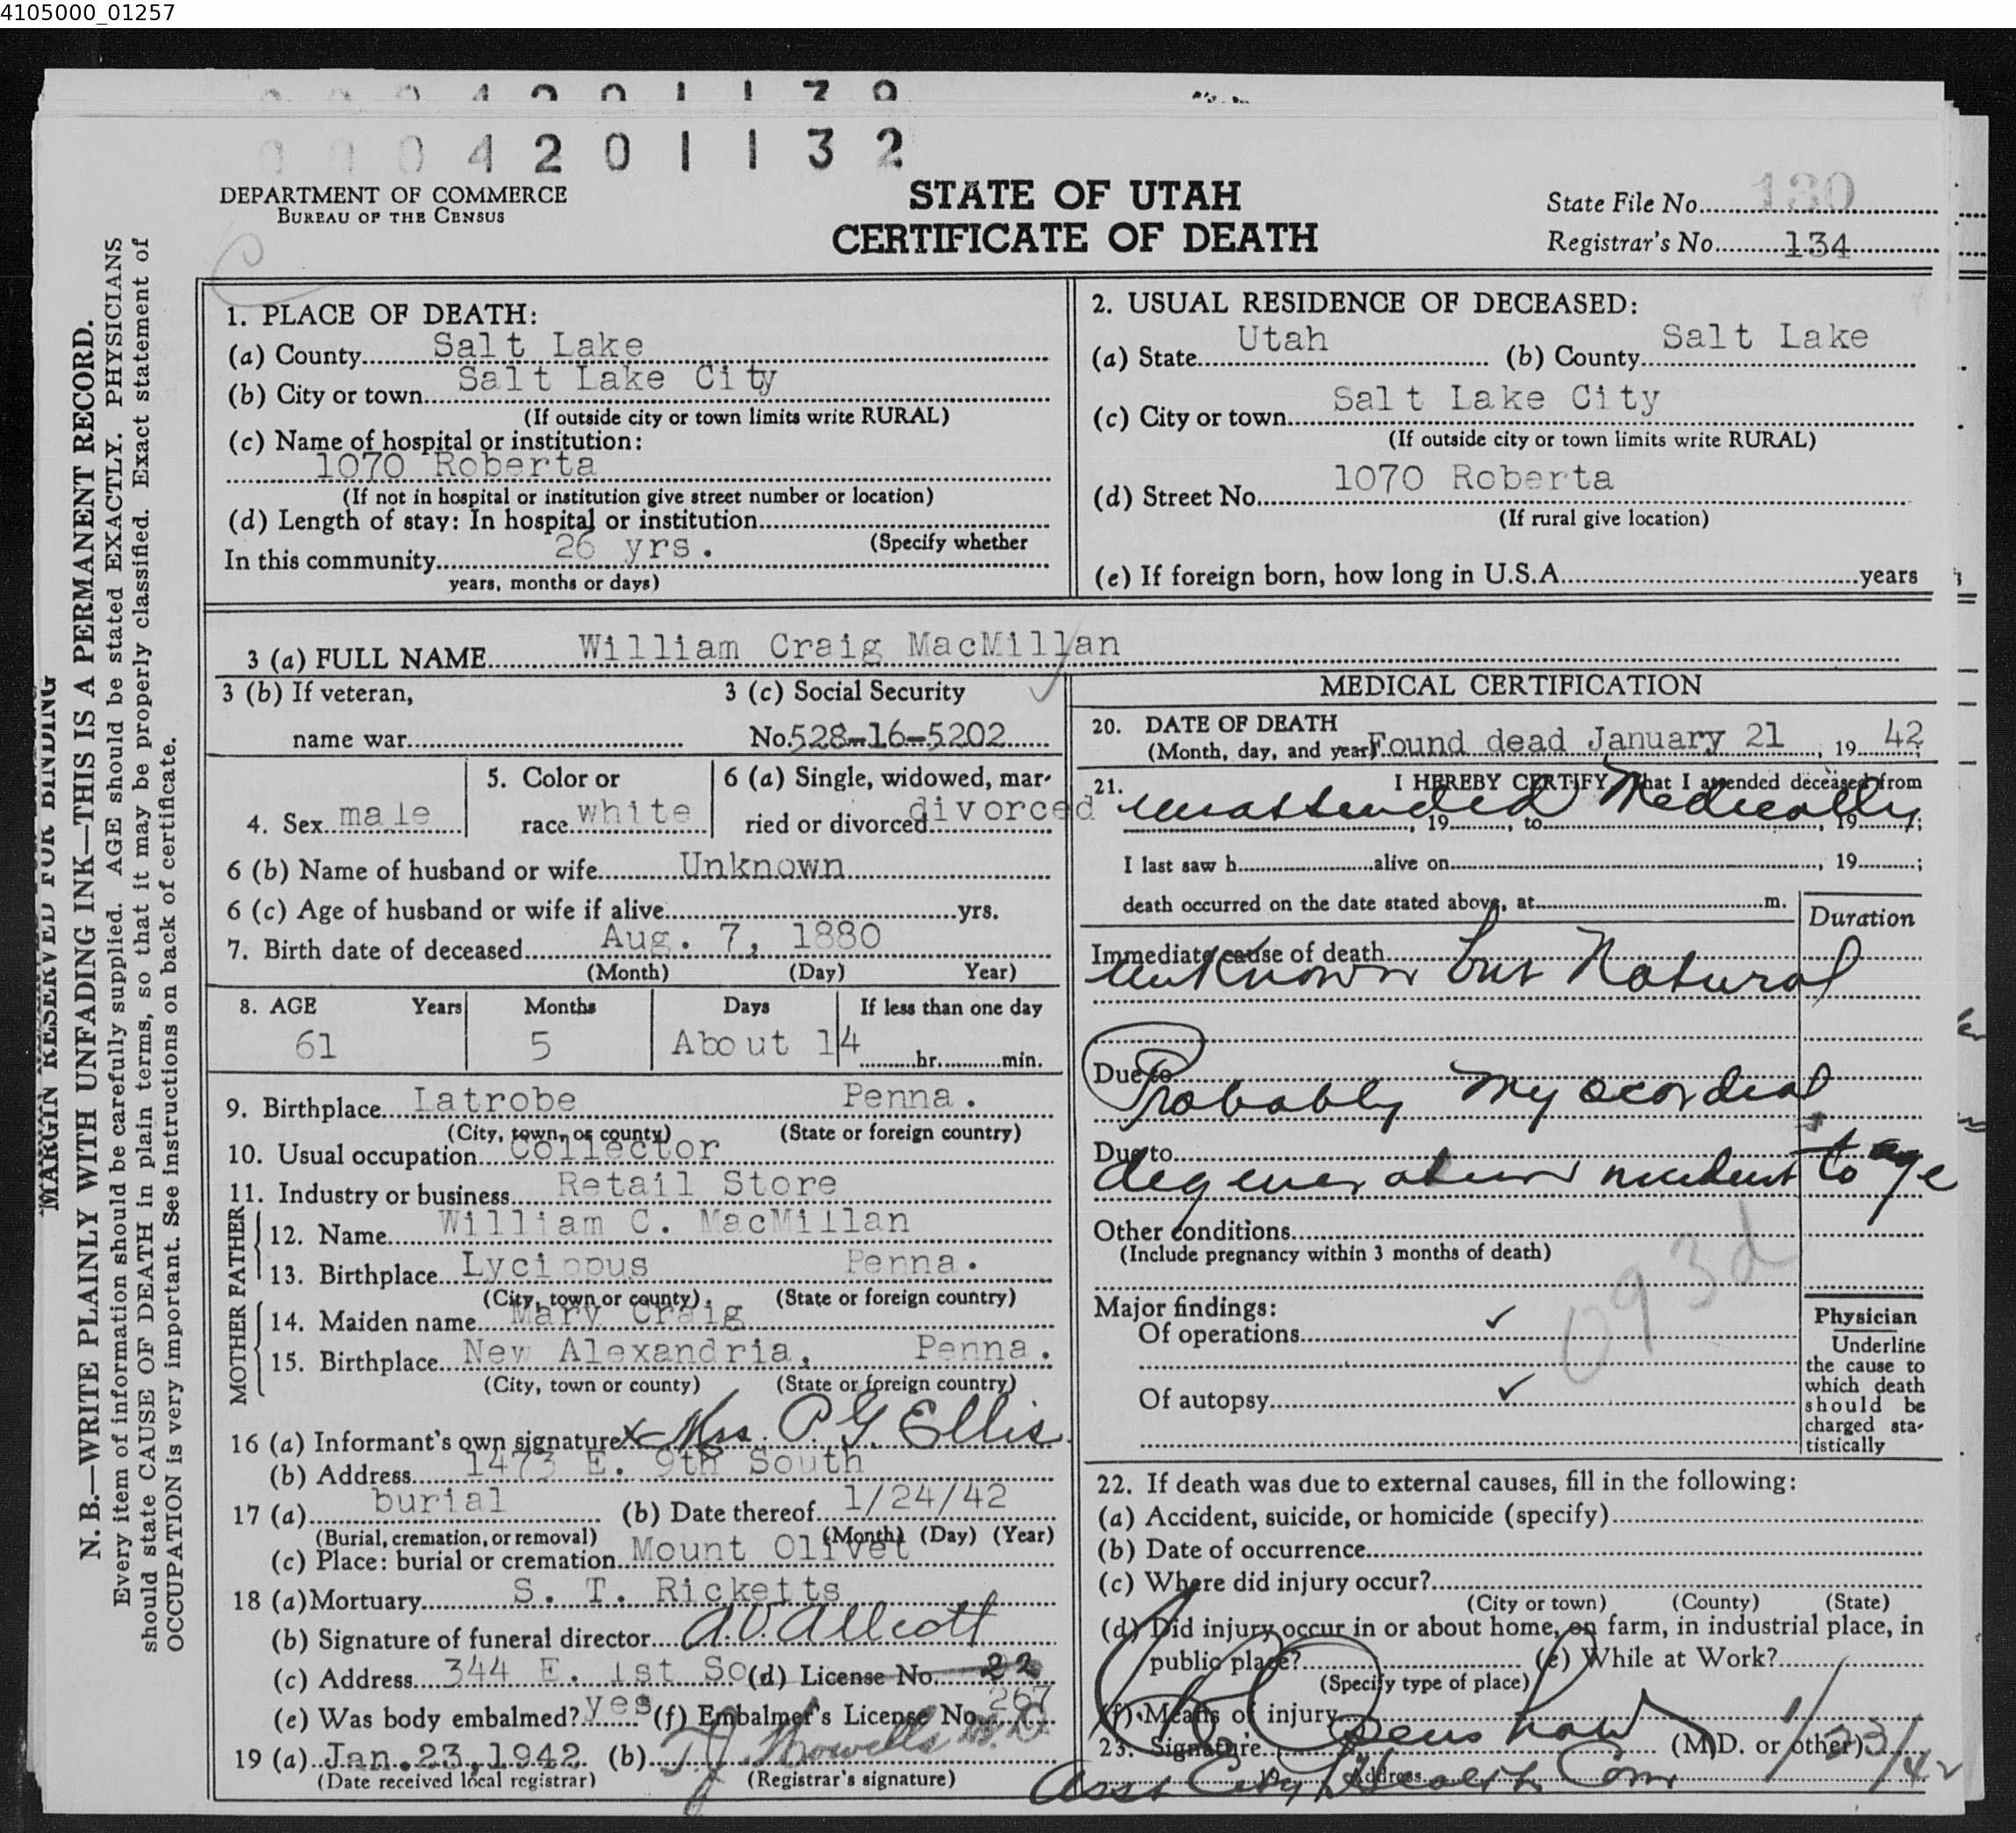 4105000_01257
0004201132
DEPARTMENT OF COMMERCE
BUREAU OF THE CENSUS
STATE OF UTAH
CERTIFICATE OF DEATH
State File No. 130
Registrar's No. 134
MARGIN RESERVED FOR BINDING
N. B.—WRITE PLAINLY WITH UNFADING INK—THIS IS A PERMANENT RECORD.
Every item of information should be carefully supplied. AGE should be stated EXACTLY. PHYSICIANS
should state CAUSE OF DEATH in plain terms, so that it may be properly classified. Exact statement of
OCCUPATION is very important. See instructions on back of certificate.
1. PLACE OF DEATH:
(a) County Salt Lake
(b) City or town Salt Lake City
(If outside city or town limits write RURAL)
(c) Name of hospital or institution:
1070 Roberta
(If not in hospital or institution give street number or location)
(d) Length of stay: In hospital or institution
(Specify whether
In this community 26 yrs.
years, months or days)
2. USUAL RESIDENCE OF DECEASED:
(a) State Utah (b) County Salt Lake
(c) City or town Salt Lake City
(If outside city or town limits write RURAL)
(d) Street No. 1070 Roberta
(If rural give location)
(e) If foreign born, how long in U.S.A. years
3 (a) FULL NAME William Craig MacMillan
3 (b) If veteran, 3 (c) Social Security
name war No. 528-16-5202
4. Sex male 5. Color or race white 6 (a) Single, widowed, married or divorced divorced
6 (b) Name of husband or wife Unknown
6 (c) Age of husband or wife if alive yrs.
7. Birth date of deceased Aug. 7, 1880
(Month) (Day) Year)
8. AGE Years Months Days If less than one day
61 5 About 14 hr. min.
9. Birthplace Latrobe Penna.
(City, town, or county) (State or foreign country)
10. Usual occupation Collector
11. Industry or business Retail Store
FATHER
12. Name William C. MacMillan
13. Birthplace Lycippus Penna.
(City, town or county) (State or foreign country)
MOTHER
14. Maiden name Mary Craig
15. Birthplace New Alexandria, Penna.
(City, town or county) (State or foreign country)
16 (a) Informant's own signature x Mrs. P. G. Ellis
(b) Address 1473 E. 9th South
17 (a) burial (b) Date thereof 1/24/42
(Burial, cremation, or removal) (Month) (Day) (Year)
(c) Place: burial or cremation Mount Olivet
18 (a) Mortuary S. T. Ricketts
(b) Signature of funeral director A.V. Allcott
(c) Address 344 E. 1st So (d) License No. 22
(e) Was body embalmed? yes (f) Embalmer's License No. 267
19 (a) Jan. 23, 1942 (b) T J Howells M.D.
(Date received local registrar) (Registrar's signature)
MEDICAL CERTIFICATION
20. DATE OF DEATH
(Month, day, and year) Found dead January 21, 19 42
21. I HEREBY CERTIFY, That I attended deceased from
unattended Medically
, 19 , to , 19 ;
I last saw h alive on , 19 ;
death occurred on the date stated above, at m.
Duration
Immediate cause of death
unknown but Natural
Due to
Probably Myocordial
Due to
degeneration incident to age
Other conditions
(Include pregnancy within 3 months of death)
093d
Major findings:
Of operations ✓
Of autopsy ✓
Physician
Underline
the cause to
which death
should be
charged sta-
tistically
22. If death was due to external causes, fill in the following:
(a) Accident, suicide, or homicide (specify)
(b) Date of occurrence
(c) Where did injury occur?
(City or town) (County) (State)
(d) Did injury occur in or about home, on farm, in industrial place, in
public place? (e) While at Work?
(Specify type of place)
(f) Means of injury
23. Signature (M.D. or other) 1/23/42
Address
Asst City Health Com